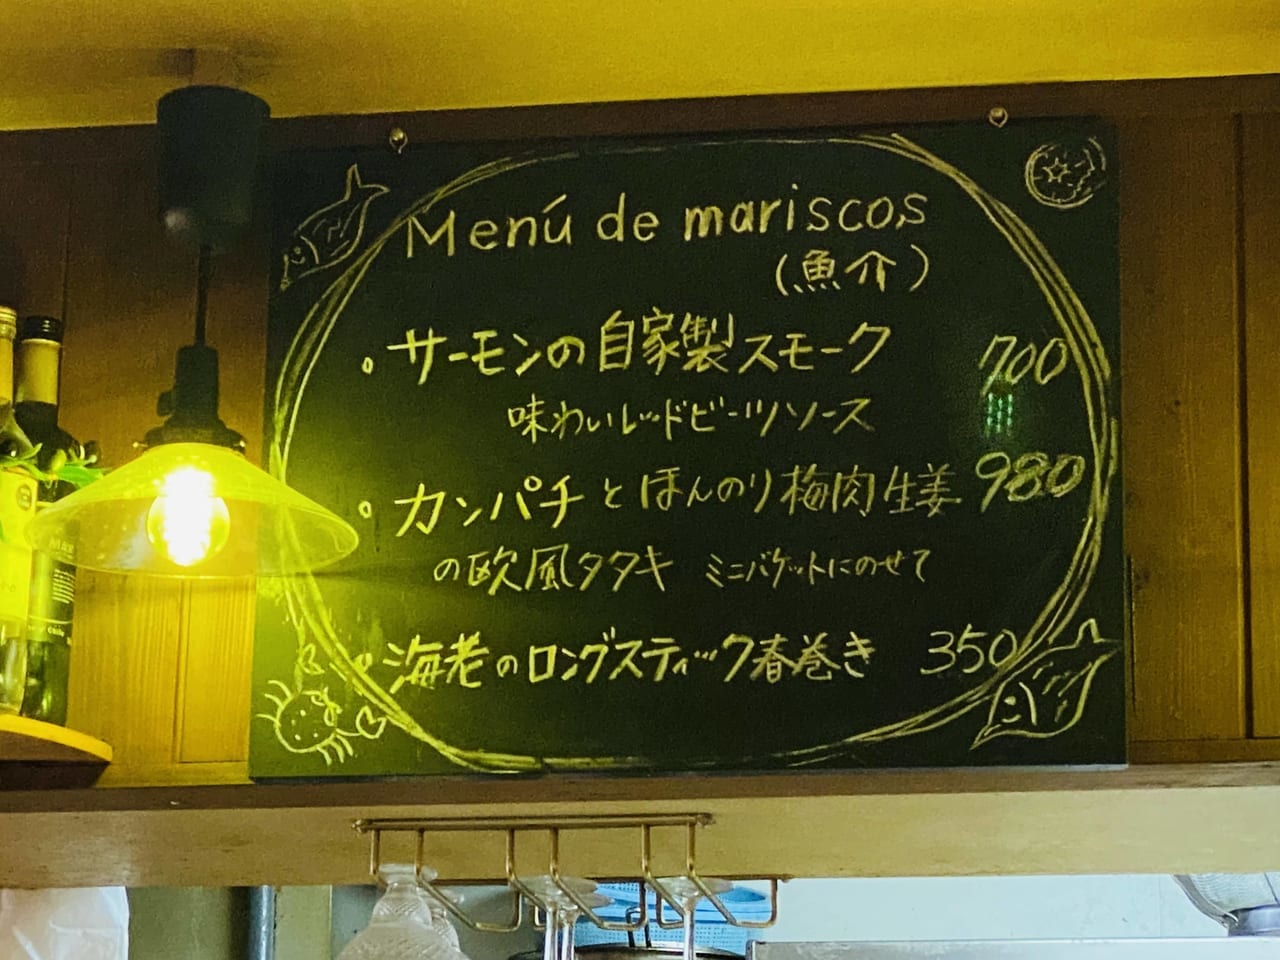 Menú de mariscos
(魚介)
。サーモンの自家製スモーク 700
味わいレッドビーツソース
。カンパチとほんのり梅肉生姜 980
の欧風タタキ ミニバゲットにのせて
。海老のロングスティック春巻き 350